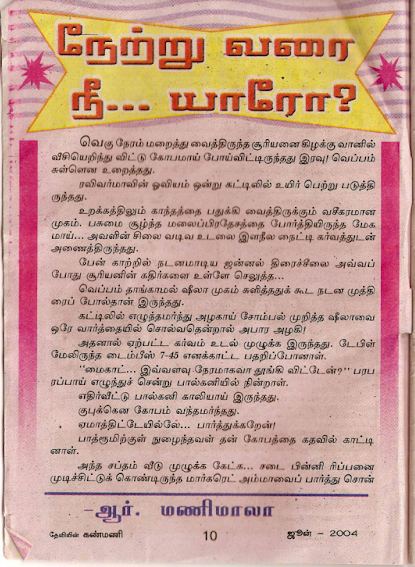 நேற்று வரை
நீ... யாரோ?
வெகு நேரம் மறைத்து வைத்திருந்த சூரியனை கிழக்கு வானில்
வீசியெறிந்து விட்டு கோபமாய் போய்விட்டிருந்தது இரவு! வெப்பம்
சுள்ளென உறைத்தது.
ரவிவர்மாவின் ஓவியம் ஒன்று கட்டிலில் உயிர் பெற்று படுத்தி
ருந்தது.
உறக்கத்திலும் காந்தத்தை பதுக்கி வைத்திருக்கும் வசீகரமான
முகம். பசுமை சூழ்ந்த மலைப்பிரதேசத்தை போர்த்தியிருந்த மேக
மாய்... அவளின் சிலை வடிவ உடலை இளநீல நைட்டி கர்வத்துடன்
அணைத்திருந்தது.
பேன் காற்றில் நடனமாடிய ஜன்னல் திரைச்சீலை அவ்வப்
போது சூரியனின் கதிர்களை உள்ளே செலுத்த...
வெப்பம் தாங்காமல் ஷீலா முகம் சுளித்ததுக் கூட நடன முத்தி
ரைப் போல்தான் இருந்தது.
கட்டிலில் எழுந்தமர்ந்து அழகாய் சோம்பல் முறித்த ஷீலாவை
ஒரே வார்த்தையில் சொல்வதென்றால் அபார அழகி!
அதனால் ஏற்பட்ட கர்வம் உடல் முழுக்க இருந்தது. டேபிள்
மேலிருந்த டைம்பீஸ் 7-45 எனக்காட்ட பதறிப்போனாள்.
"மைகாட்... இவ்வளவு நேரமாகவா தூங்கி விட்டேன்?" பரப
ரப்பாய் எழுந்துச் சென்று பால்கனியில் நின்றாள்.
எதிர்வீட்டு பால்கனி காலியாய் இருந்தது.
குபுக்கென கோபம் வந்தமர்ந்தது.
ஏமாத்திட்டேயில்லே... பார்த்துக்கறேன்!
பாத்ரூமிற்குள் நுழைந்தவள் தன் கோபத்தை கதவில் காட்டி
னாள்.
அந்த சப்தம் வீடு முழுக்க கேட்க... சடை பின்னி ரிப்பனை
முடிச்சிட்டுக் கொண்டிருந்த மார்கரெட் அம்மாவைப் பார்த்து சொன்
-ஆர். மணிமாலா
தேவியின் கண்மணி
10
ஜூன் - 2004